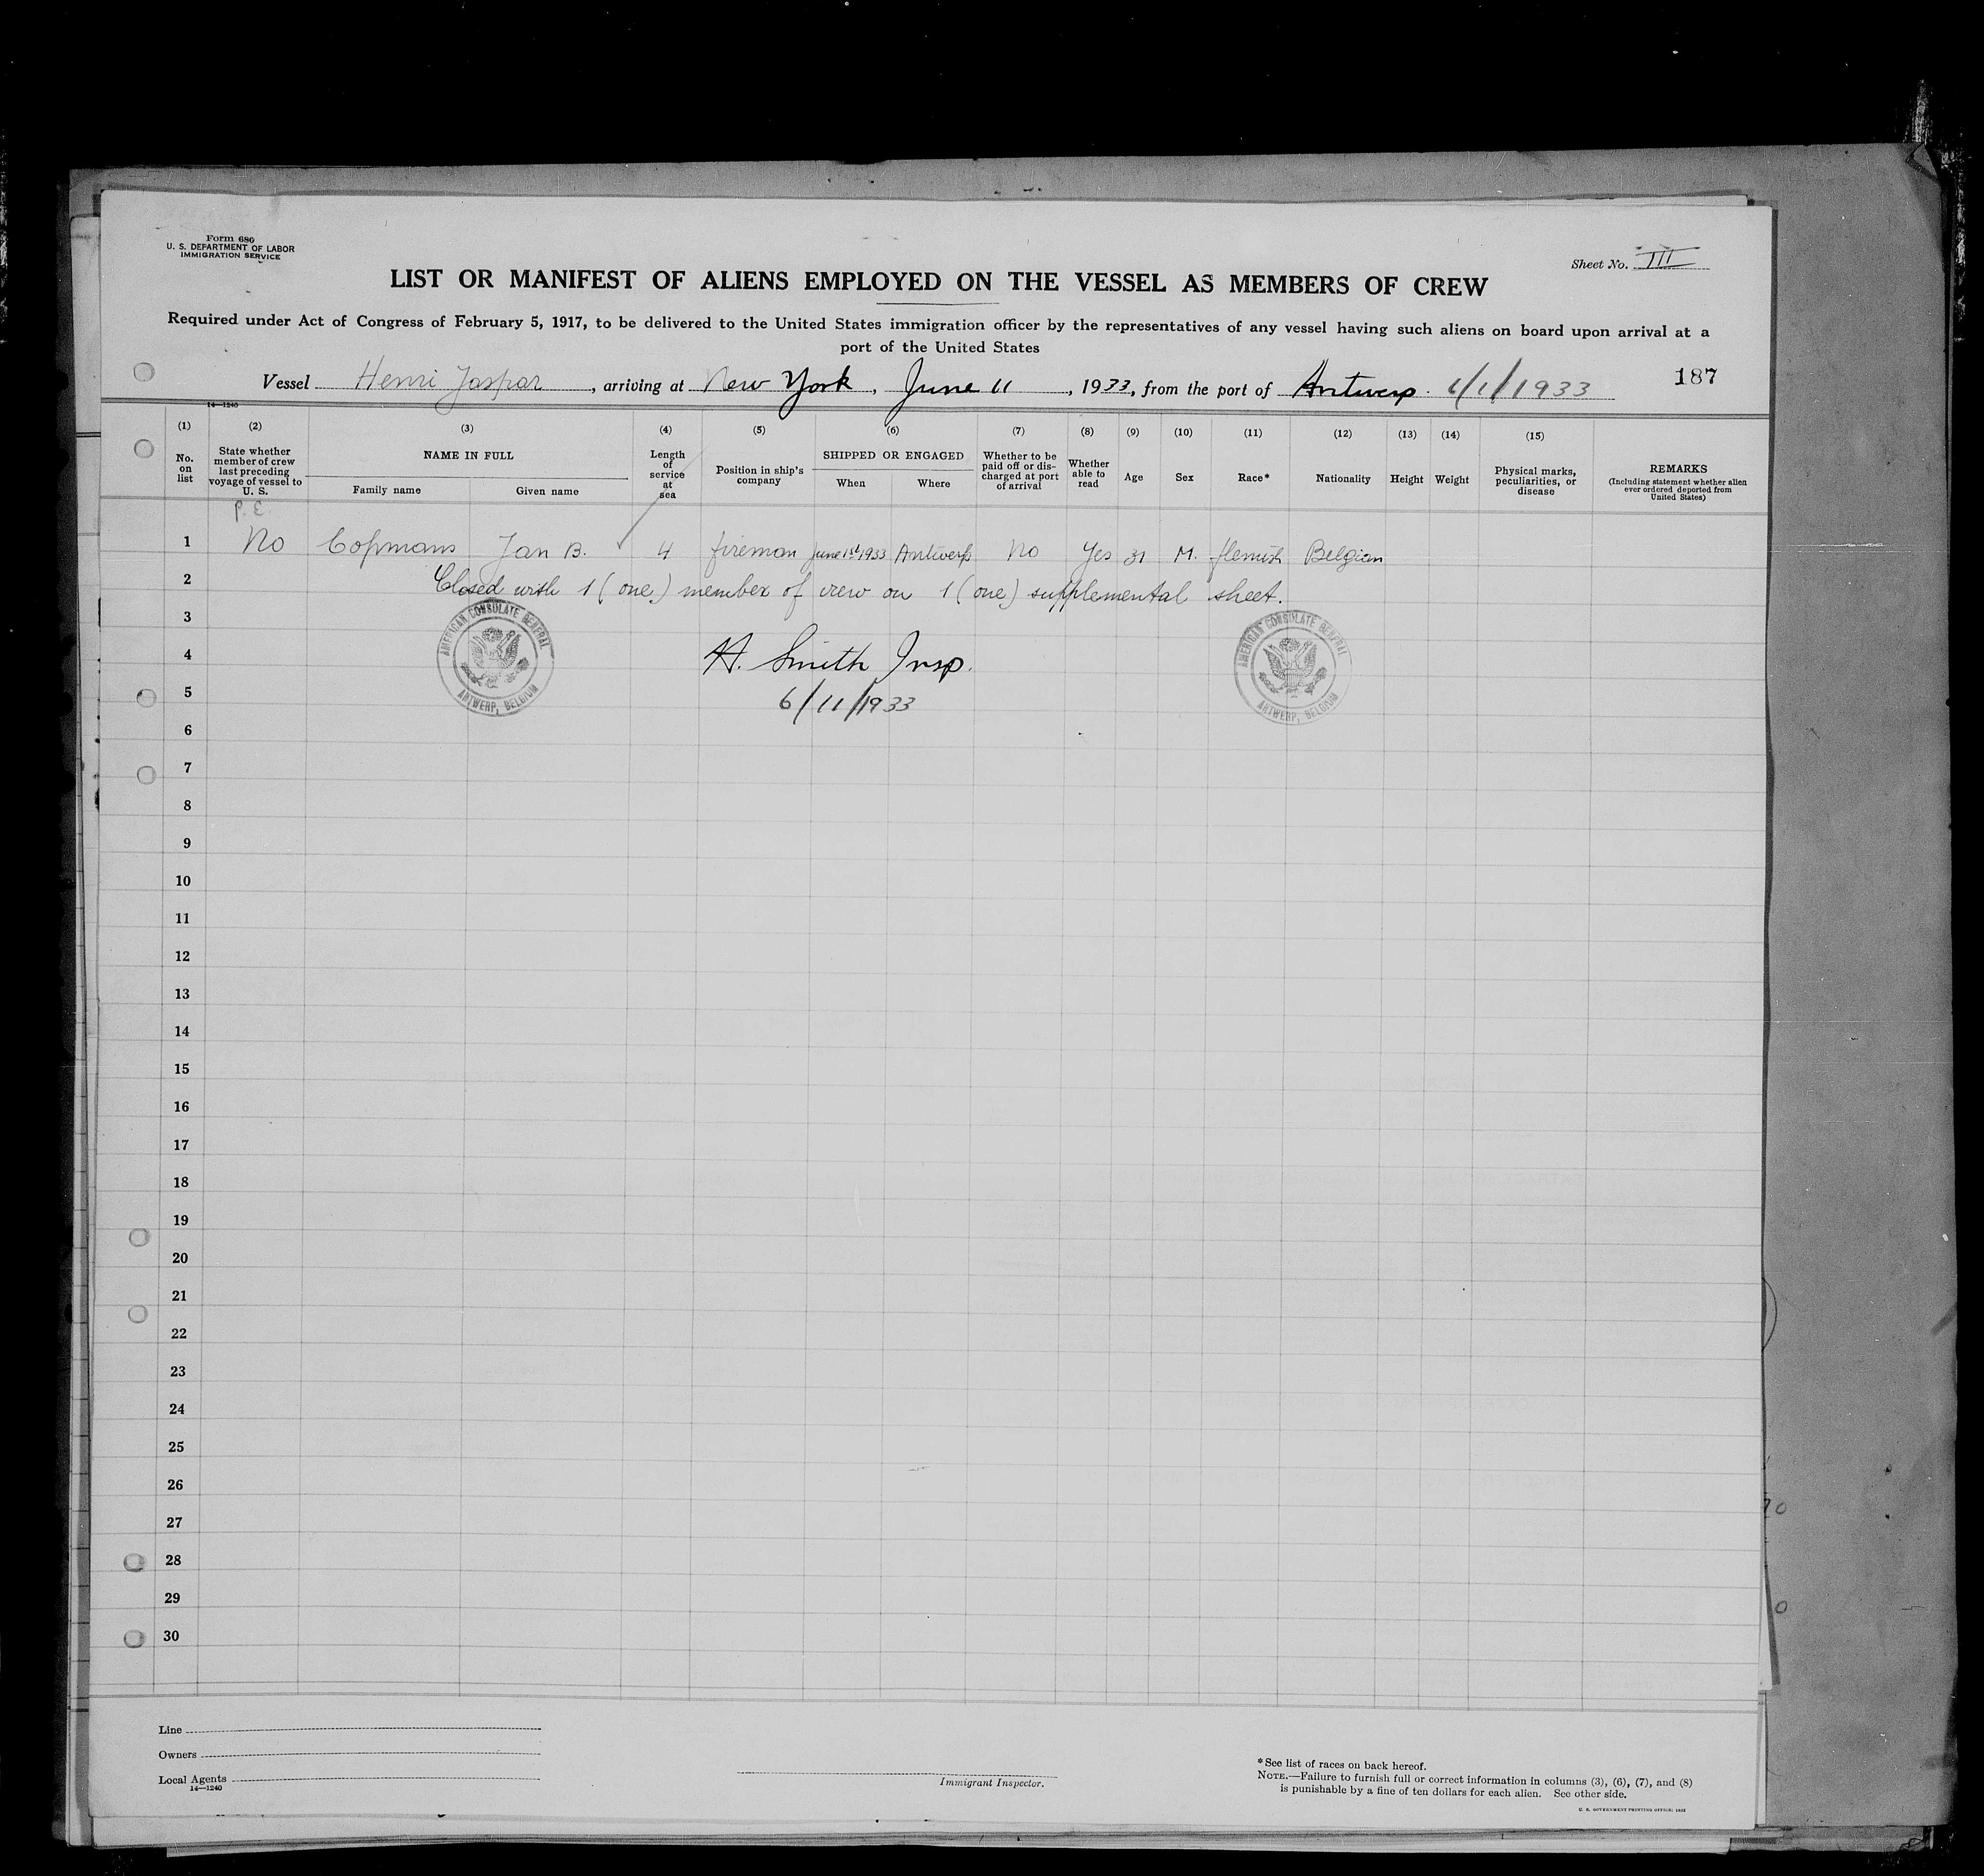 Form 680
U. S. DEPARTMENT OF LABOR
IMMIGRATION SERVICE
Sheet No. III
LIST OR MANIFEST OF ALIENS EMPLOYED ON THE VESSEL AS MEMBERS OF CREW
Required under Act of Congress of February 5, 1917, to be delivered to the United States immigration officer by the representatives of any vessel having such aliens on board upon arrival at a
port of the United States
Vessel Henri Jaspar, arriving at New York, June 11, 1933, from the port of Antwerp. 6/1/1933
187
14—1240
(1) No. on list
(2) State whether member of crew last preceding voyage of vessel to U. S.
(3) NAME IN FULL
Family name
Given name
(4) Length of service at sea
(5) Position in ship's company
(6) SHIPPED OR ENGAGED
When
Where
(7) Whether to be paid off or discharged at port of arrival
(8) Whether able to read
(9) Age
(10) Sex
(11) Race*
(12) Nationality
(13) Height
(14) Weight
(15) Physical marks, peculiarities, or disease
REMARKS
(Including statement whether alien ever ordered deported from United States)
P. E
1 No Copmans Jan B. 4 fireman June 1st 1933 Antwerp No Yes 31 M. flemish Belgian
2 Closed with 1 (one) member of crew on 1 (one) supplemental sheet.
3
AMERICAN CONSULATE GENERAL
ANTWERP, BELGIUM
AMERICAN CONSULATE GENERAL
ANTWERP, BELGIUM
4 H. Smith Insp.
5 6/11/1933
6
7
8
9
10
11
12
13
14
15
16
17
18
19
20
21
22
23
24
25
26
27
28
29
30
Line
Owners
Local Agents
14—1240
Immigrant Inspector.
*See list of races on back hereof.
NOTE.—Failure to furnish full or correct information in columns (3), (6), (7), and (8)
is punishable by a fine of ten dollars for each alien. See other side.
U. S. GOVERNMENT PRINTING OFFICE: 1932